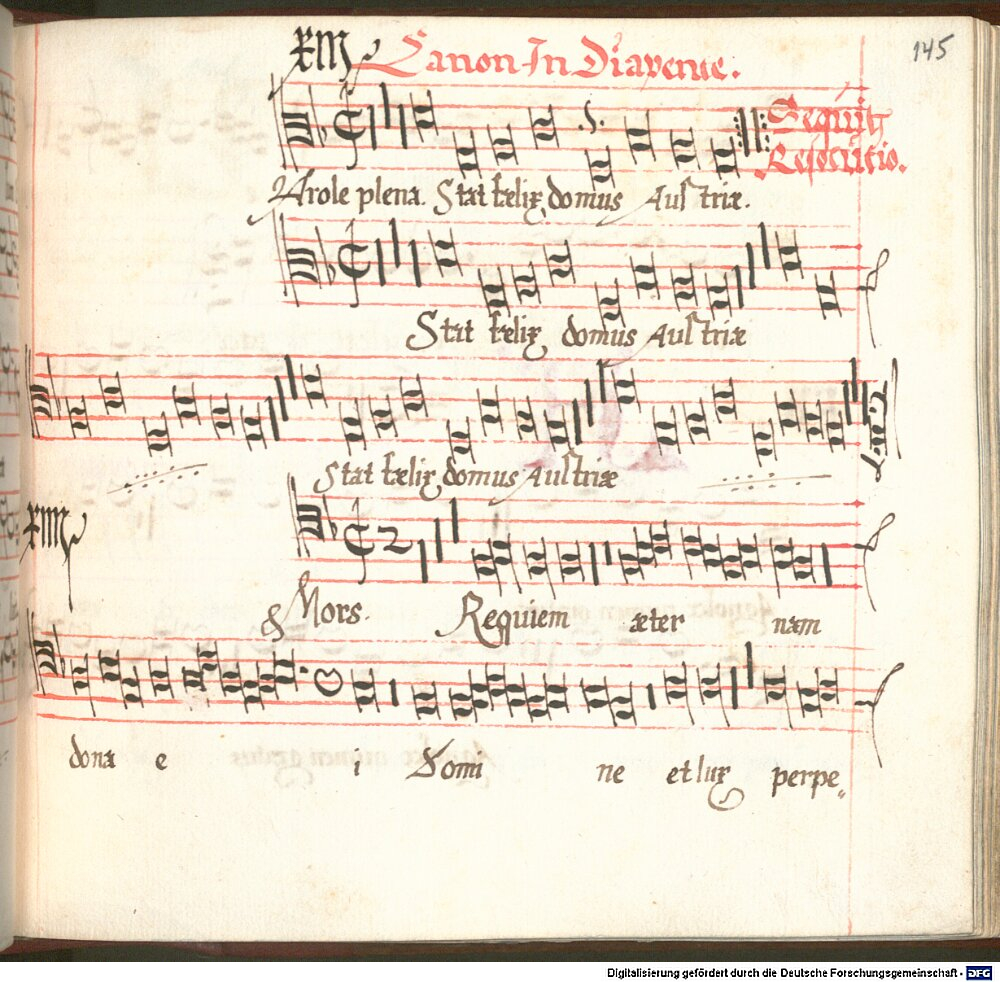 145
XIII Canon In Diapente.
Sequitur
Resolutio.
Prole plena. Stat fælix domus Austriæ.
Stat fælix domus Austriæ
Stat fælix domus Austriæ
XIIII
Mors. Requiem æter nam
dona e i Domi ne et lux perpe„
Digitalisierung gefördert durch die Deutsche Forschungsgemeinschaft - DFG